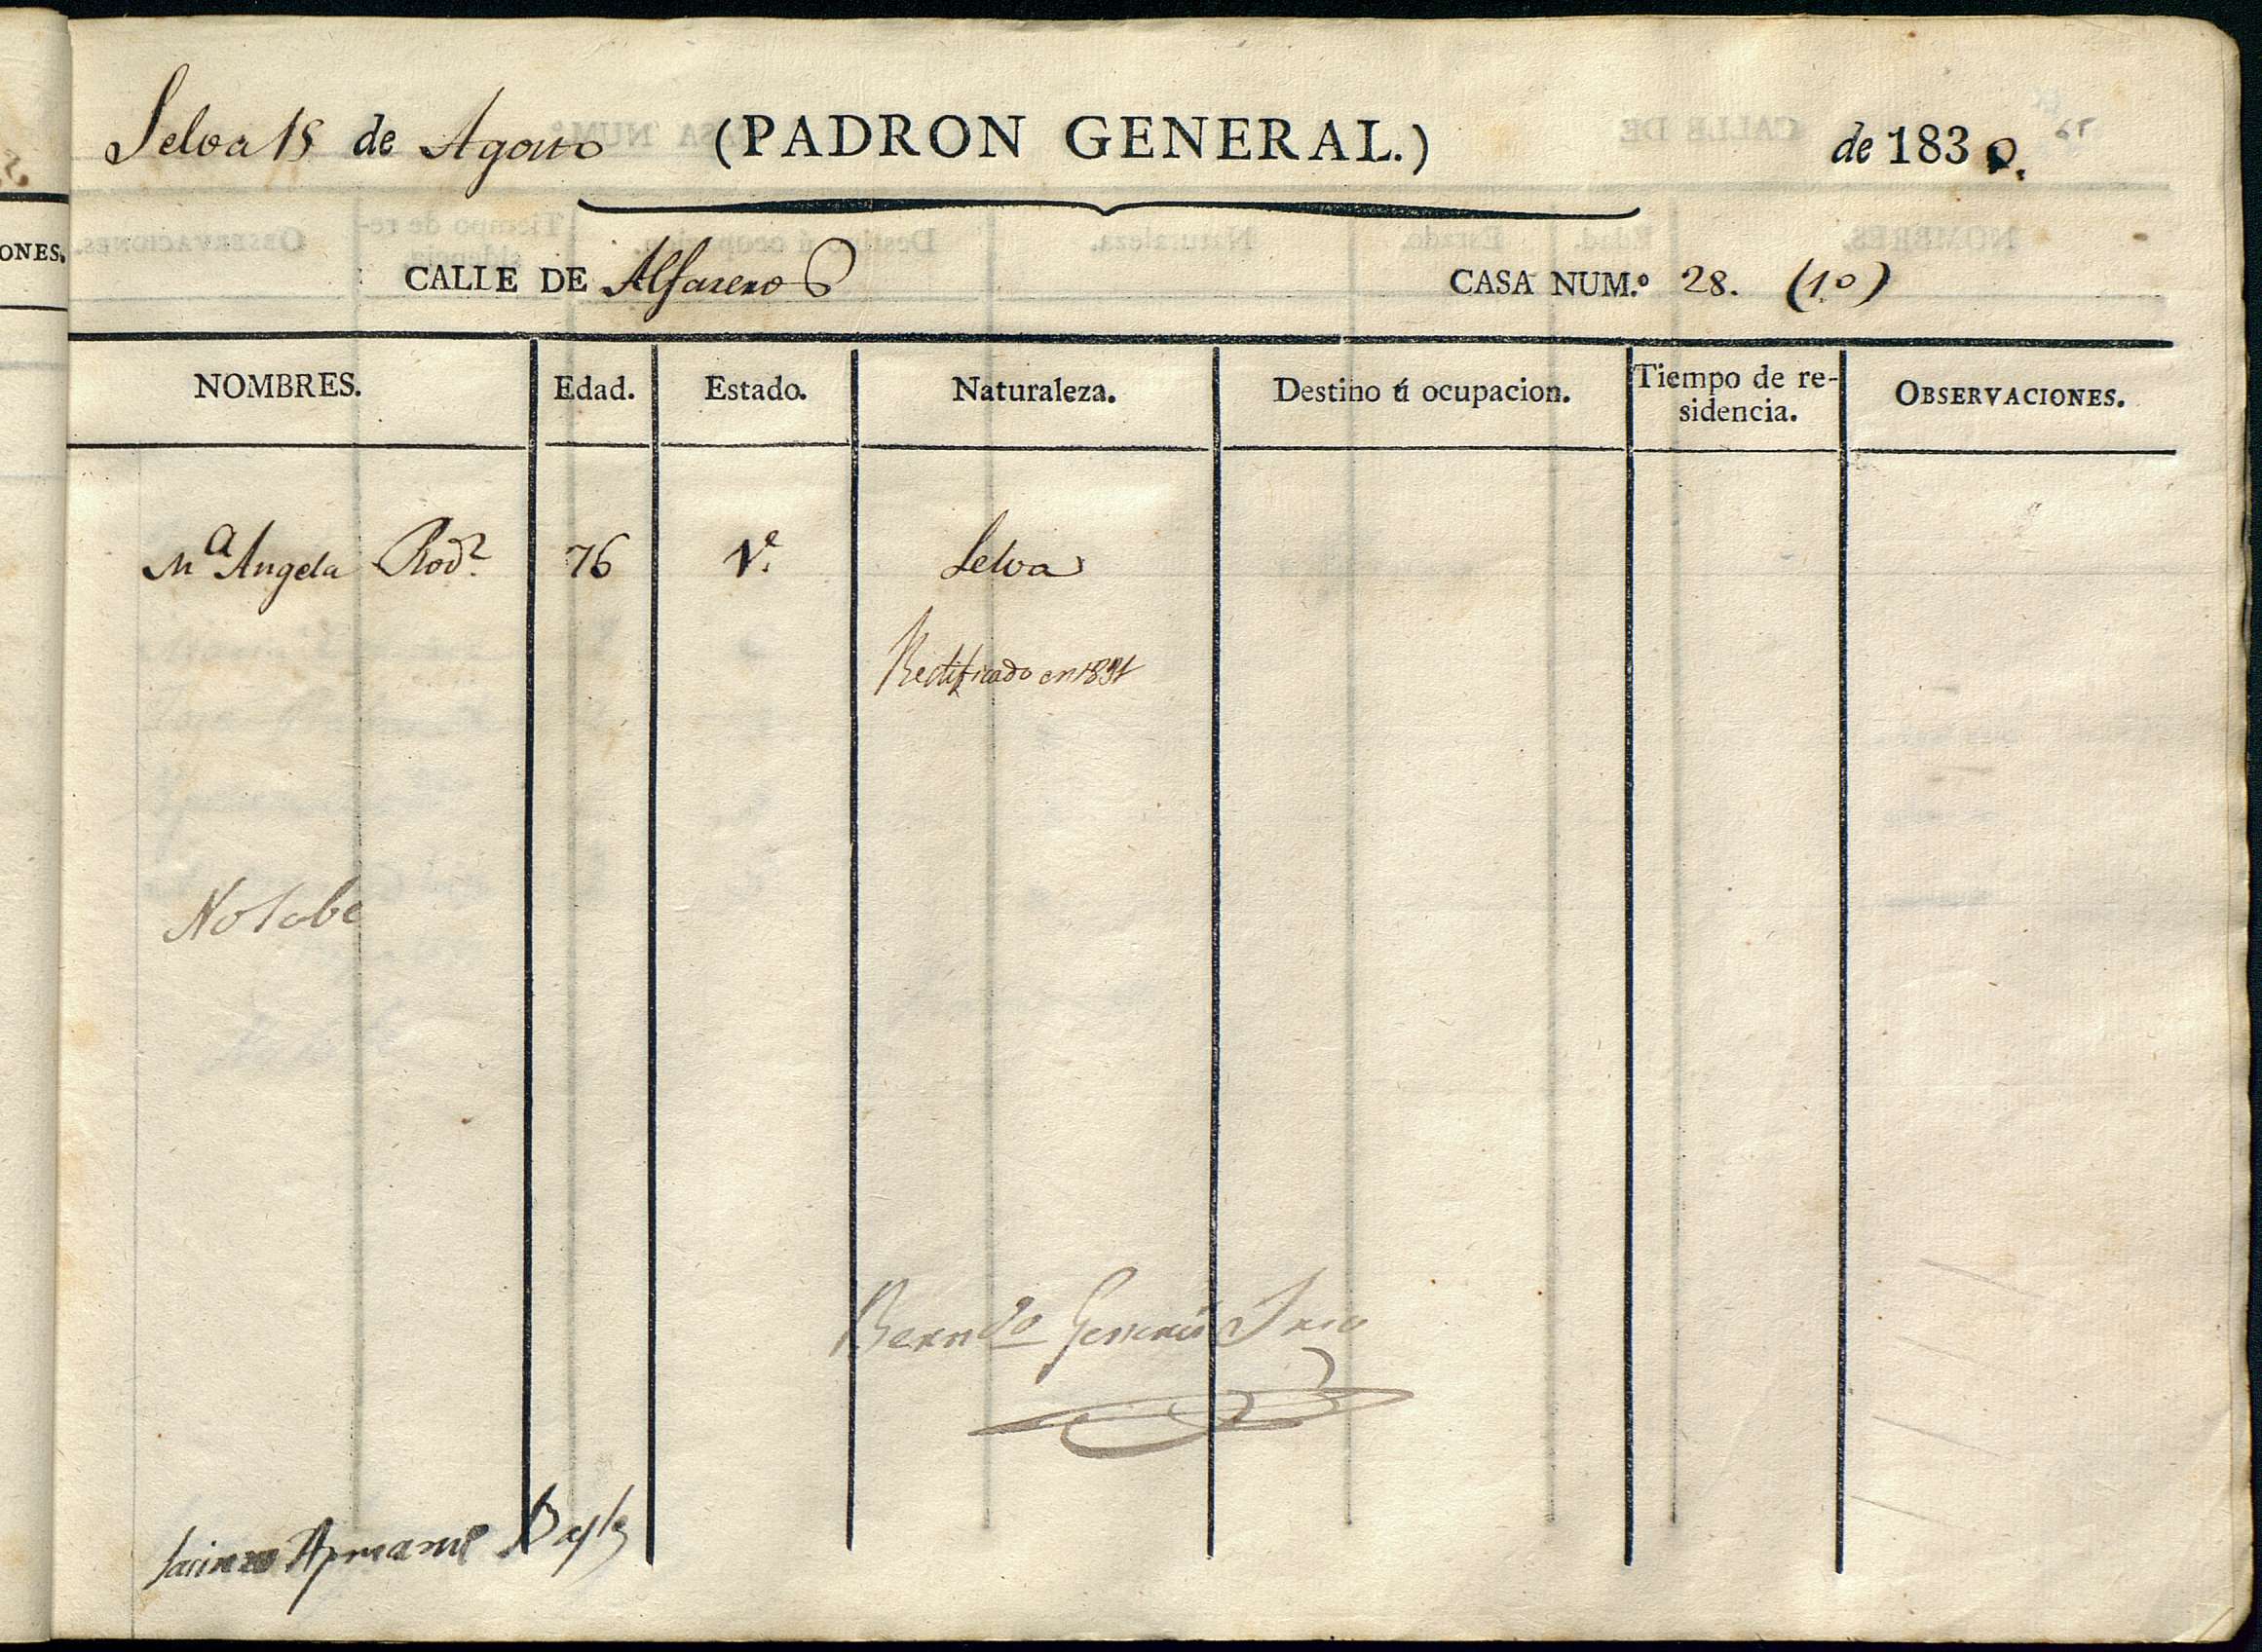 Selva 15 de Agosto (PADRON GENERAL.) de 1830.
CALLE DE Alfareros CASA NUM.º 28. (1º)
NOMBRES. Edad. Estado. Naturaleza. Destino ú ocupacion. Tiempo de re-
sidencia. OBSERVACIONES.
Mª Angela Rod.z 76 Vª. Selva
Rectificado en 1831
No Sabe
Berndo
Bayle
ONES.